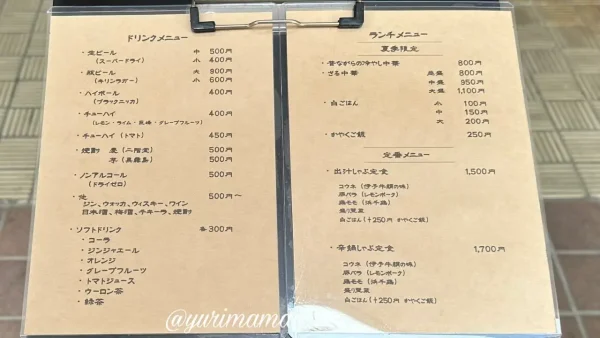 ドリンクメニュー
・生ビール 中 500円
(スーパードライ) 小 400円
・瓶ビール 大 900円
(キリンラガー) 小 600円
・ハイボール 400円
(ブラックニッカ)
・チューハイ 400円
(レモン・ライム・巨峰・グレープフルーツ)
・チューハイ(トマト) 450円
・焼酎 麦(二階堂) 500円
芋(黒霧島) 500円
・ノンアルコール 500円
(ドライゼロ)
・他 500円～
ジン、ウォッカ、ウィスキー、ワイン
日本酒、梅酒、テキーラ、焼酎
・ソフトドリンク 各300円
・コーラ
・ジンジャエール
・オレンジ
・グレープフルーツ
・トマトジュース
・ウーロン茶
・緑茶
ランチメニュー
夏季限定
・昔ながらの冷やし中華 800円
・ざる中華 並盛 800円
中盛 950円
大盛 1,100円
・白ごはん 小 100円
中 150円
大 200円
・かやくご飯 250円
定番メニュー
・出汁しゃぶ定食 1,500円
コウネ(伊予牛絹の味)
豚バラ(レモンポーク)
鶏モモ(浜千鶏)
盛り野菜
白ごはん(+250円 かやくご飯)
・辛鍋しゃぶ定食 1,700円
コウネ(伊予牛絹の味)
豚バラ(レモンポーク)
鶏モモ(浜千鶏)
盛り野菜
白ごはん(+250円 かやくご飯)
@yurimama